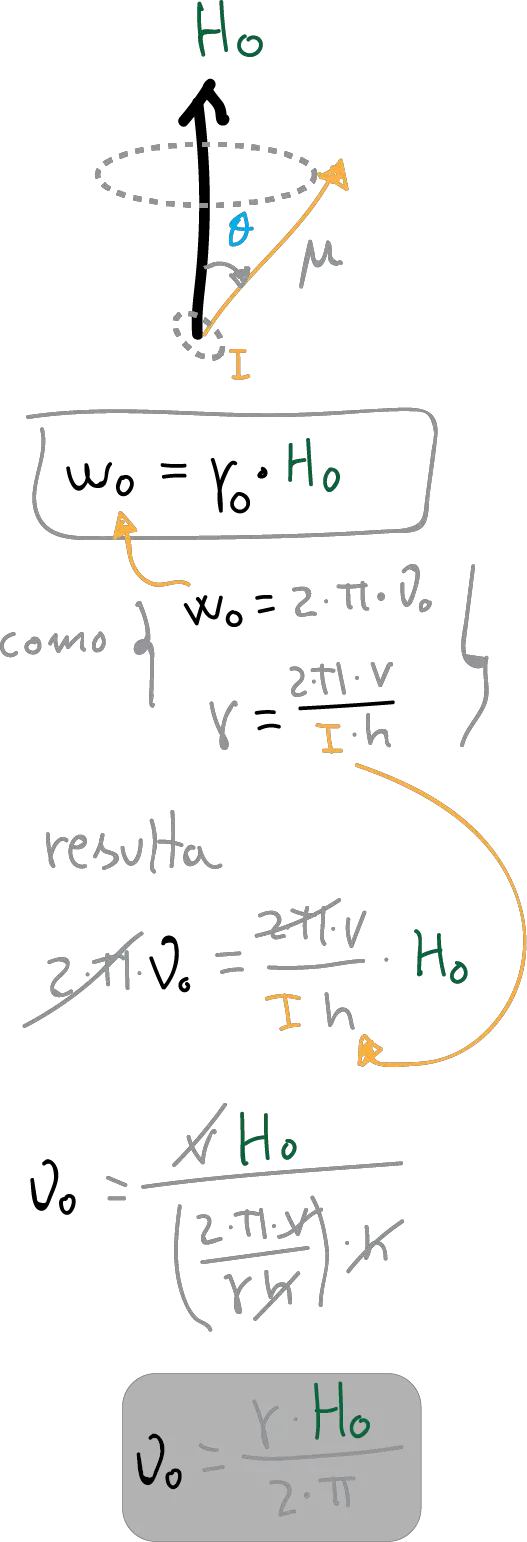 H₀
θ
μ
I
w₀ = γ₀ · H₀
w₀ = 2·π·ν₀
como
γ = 2·π·v / I·h
resulta
2·π·ν₀ = 2π·v / I h · H₀
ν₀ = v H₀ / (2·π·v / γ h) · h
ν₀ = γ · H₀ / 2·π